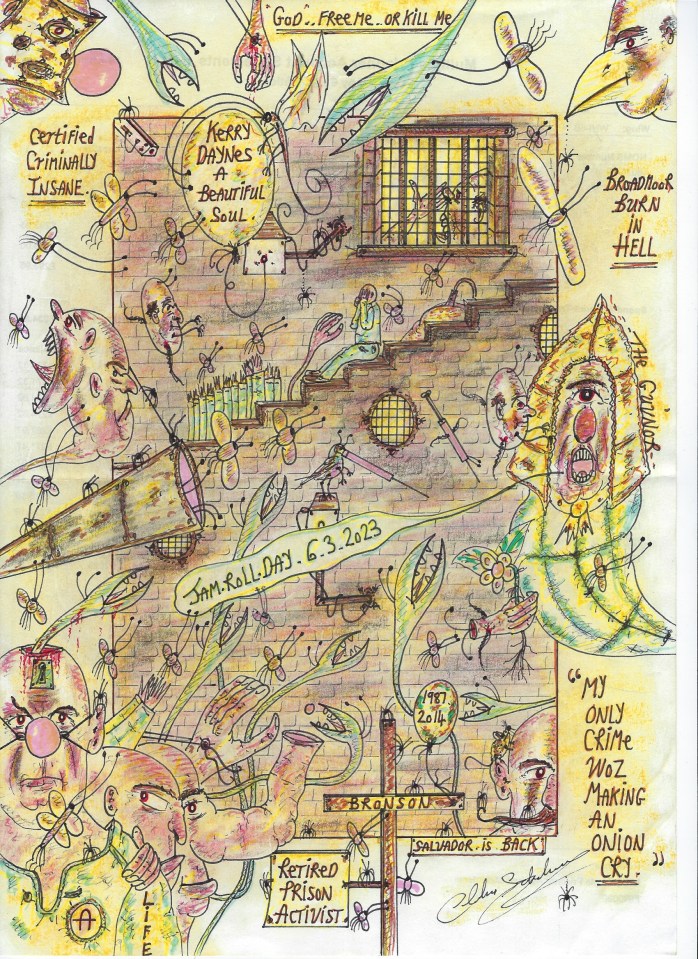 "GOD".. FREE ME.. OR KILL ME
Certified
Criminally
INSANE.
KERRY
DAYNES
A
BEAUTIFUL
SOUL
BROADMOOR
BURN
iN
HELL
JAM.ROLL.DAY. 6.3.2023
1987
2014
"MY
ONLY
CRIME
WOZ
MAKING
AN
ONION
CRY."
BRONSON
SALVADOR.iS BACK
RETIRED
PRISON
ACTIVIST.
A
LIFE